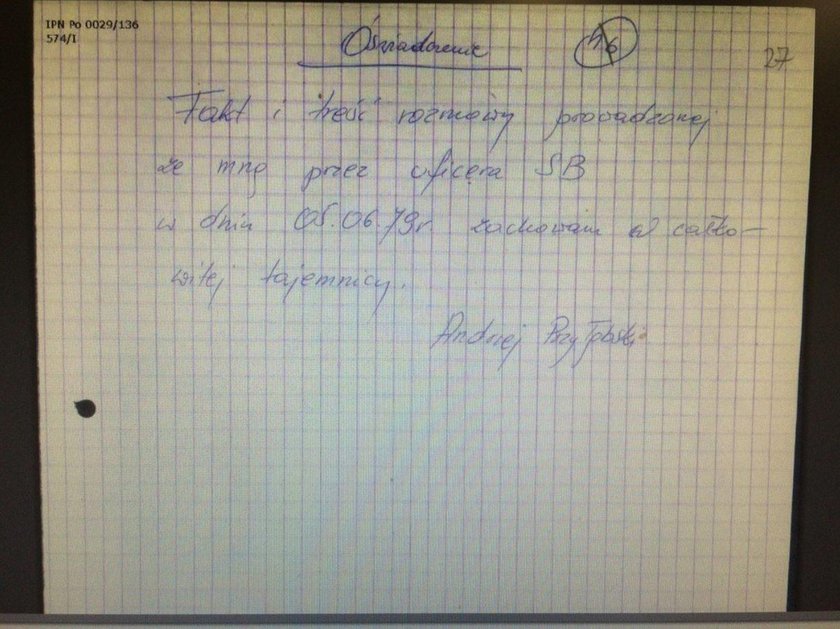 IPN Po 0029/136
574/I
Oświadczenie
46
27
Fakt i treść rozmowy prowadzonej
ze mną przez oficera SB
w dniu 05.06.79r. zachowam w całko-
witej tajemnicy.
Andrzej Przyłębski